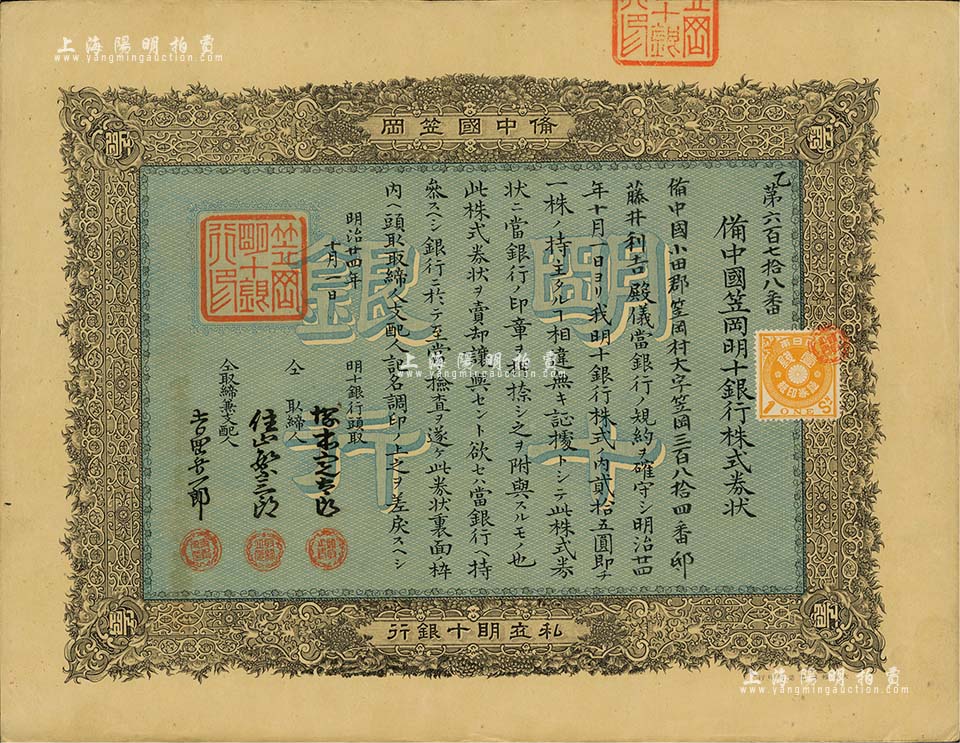 上海陽明拍賣
www.yangmingauction.com
上海陽明拍賣
www.yangmingauction.com
備中國笠岡
乙第六百七拾八番
備中國笠岡明十銀行株式券狀
備中國小田郡笠岡村大字笠岡三百八拾四番邸
藤井利吉殿儀當銀行ノ規約ヲ確守シ明治廿四
年十月一日ヨリ我明十銀行株式ノ内貳拾五圓即チ
一株ノ持主タルヿ相違無キ証據トシテ此株式券
狀ニ當銀行ノ印章ヲ押捺シ之ヲ附與スルモノ也
此株式券狀ヲ賣却讓與セント欲セハ當銀行ヘ持
參スヘシ銀行ニ於テ至當ノ撿査ヲ遂ケ此券狀裏面枠
内ヘ頭取取締人支配人記名調印ノ上之ヲ差戾スヘシ
明治廿四年
十月一日
明十銀行頭取
仝 取締人
仝取締兼支配人
明十
銀行
笠岡
明十銀
行印
大日本帝國
證券印紙
ONE
1
SEN
上海陽明拍賣
www.yangmingauction.com
私立明十銀行
上海陽明拍賣
www.yangmingauction.com